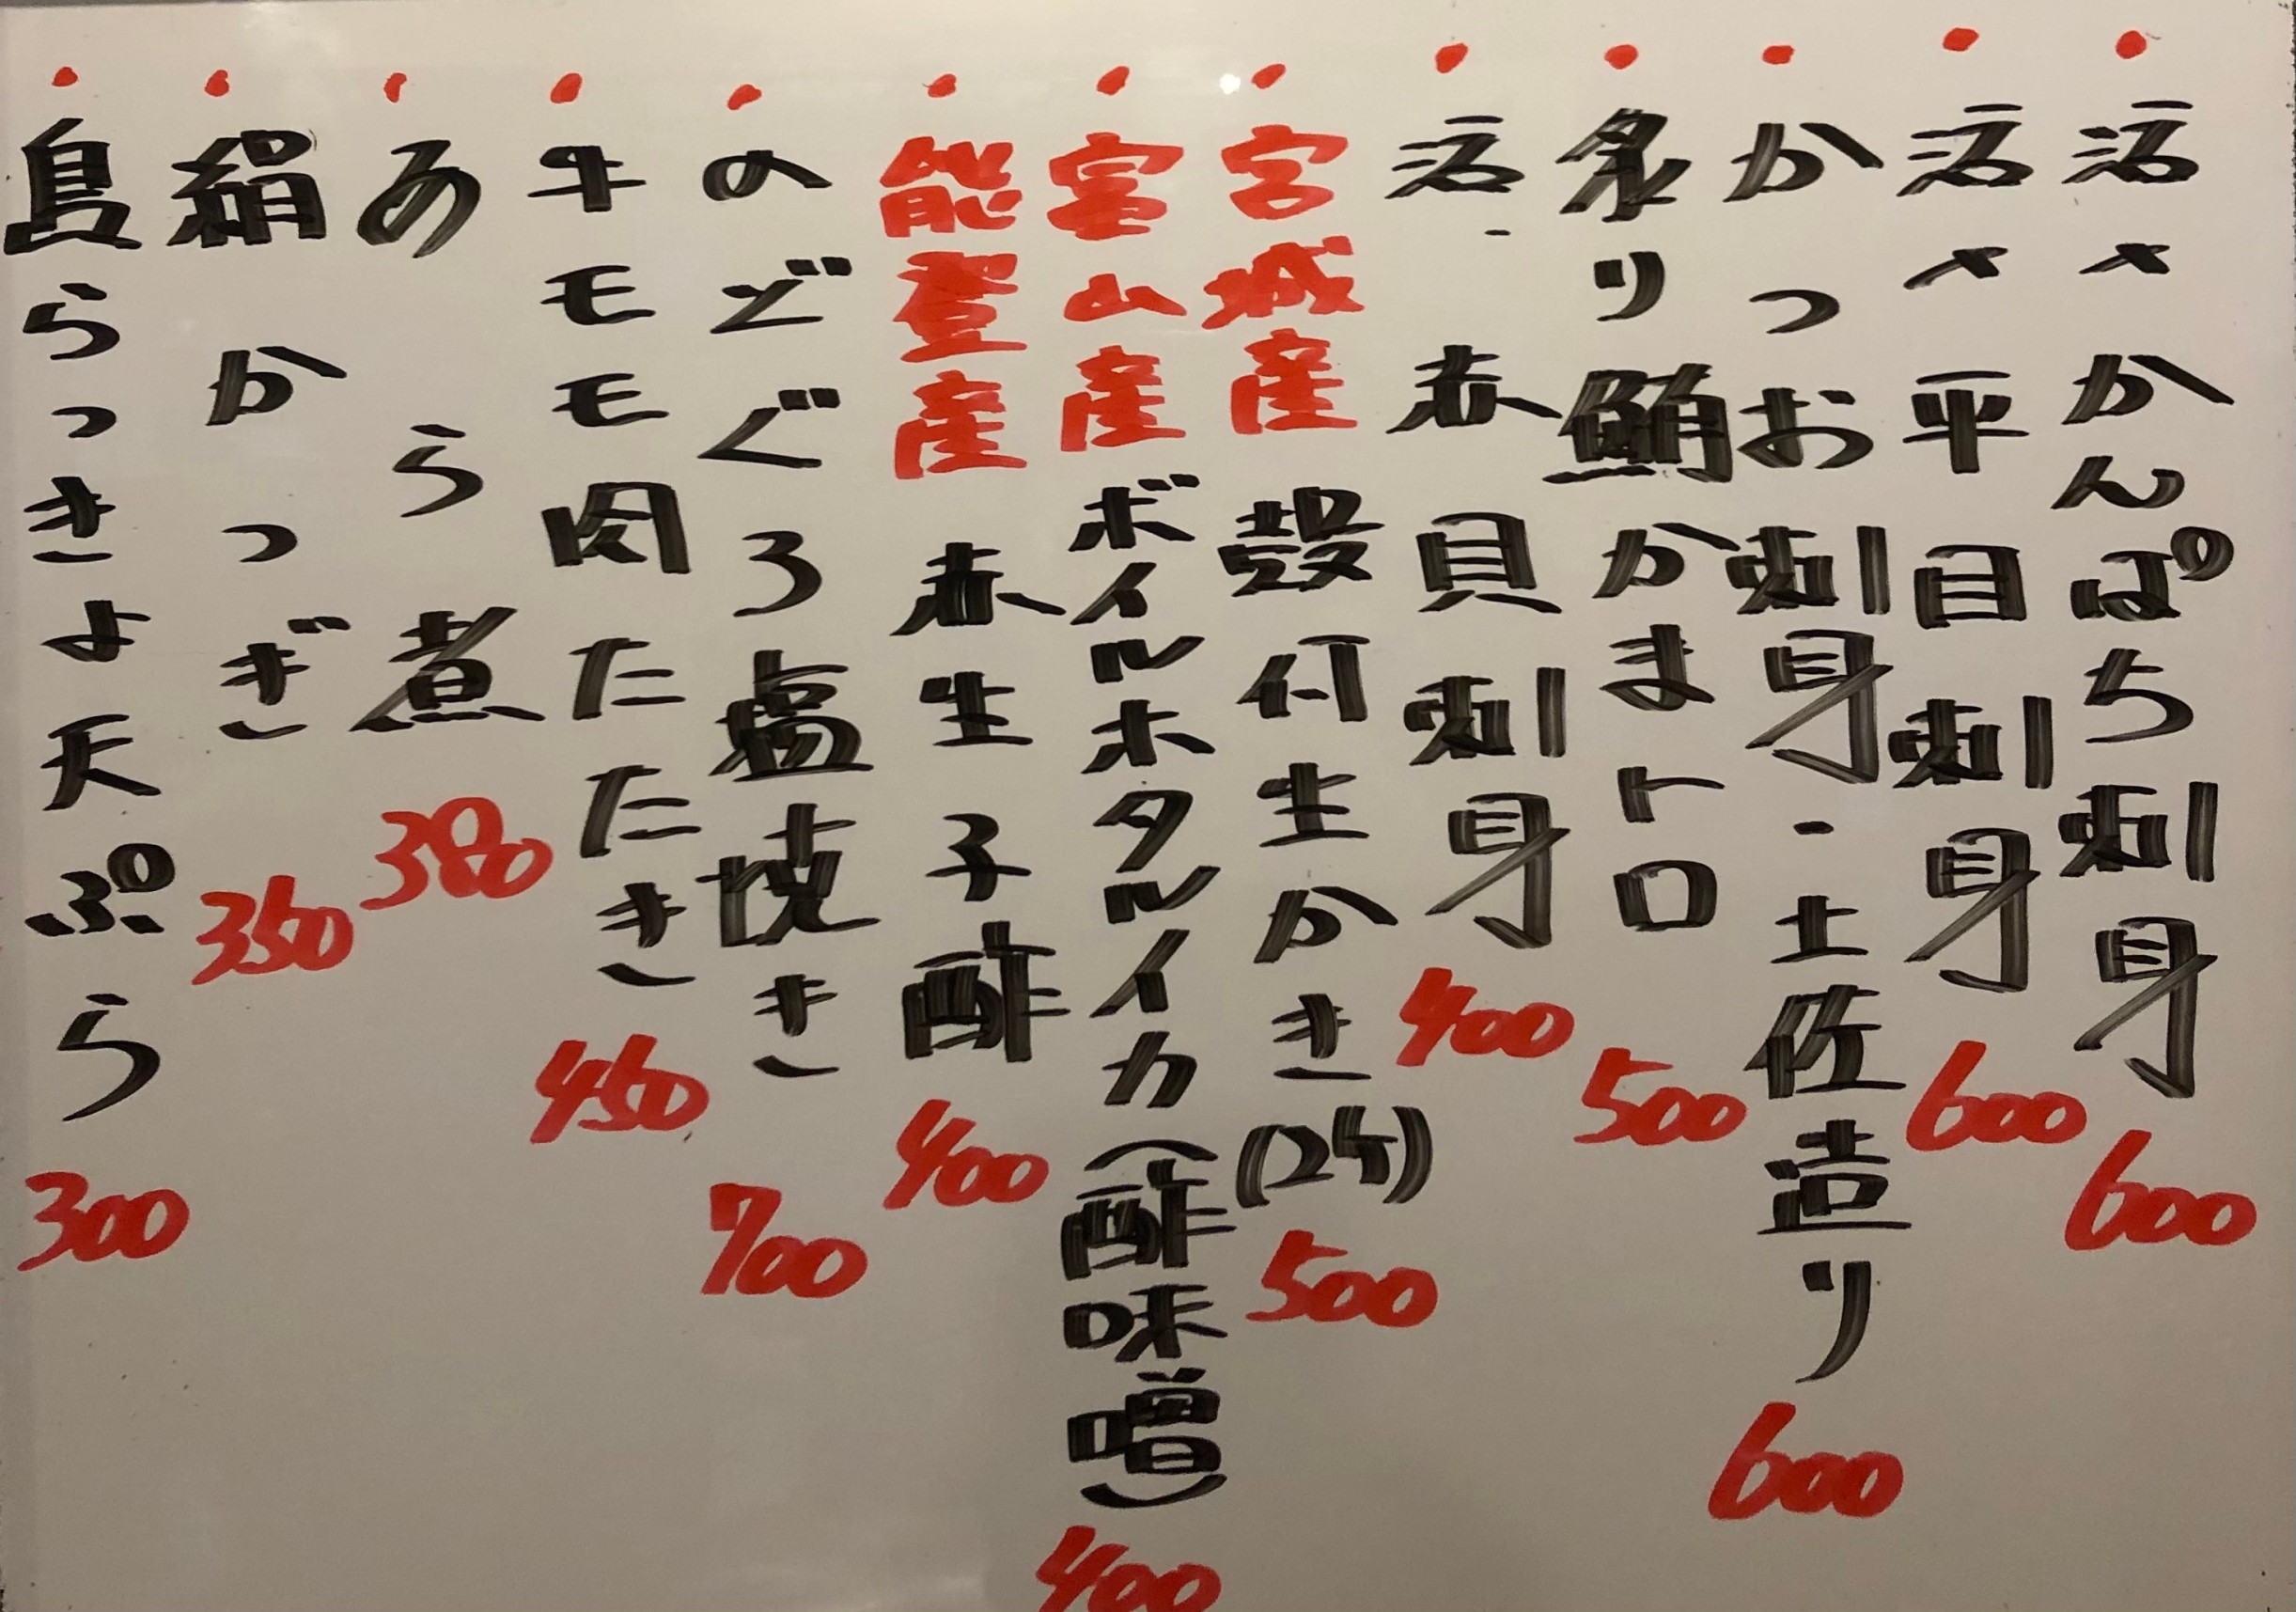 活〆かんぱち刺身 600
活〆平目刺身 600
かつお刺身・土佐造り 600
炙り鮪かまトロ 500
活赤貝刺身 400
宮城産 殻付生かき(2ケ) 500
富山産 ボイルホタルイカ(酢味噌) 400
能登産 赤生子酢 400
のどぐろ塩焼き 700
牛モモ肉たたき 450
あら煮 380
絹かつぎ 350
島らっきょ天ぷら 300